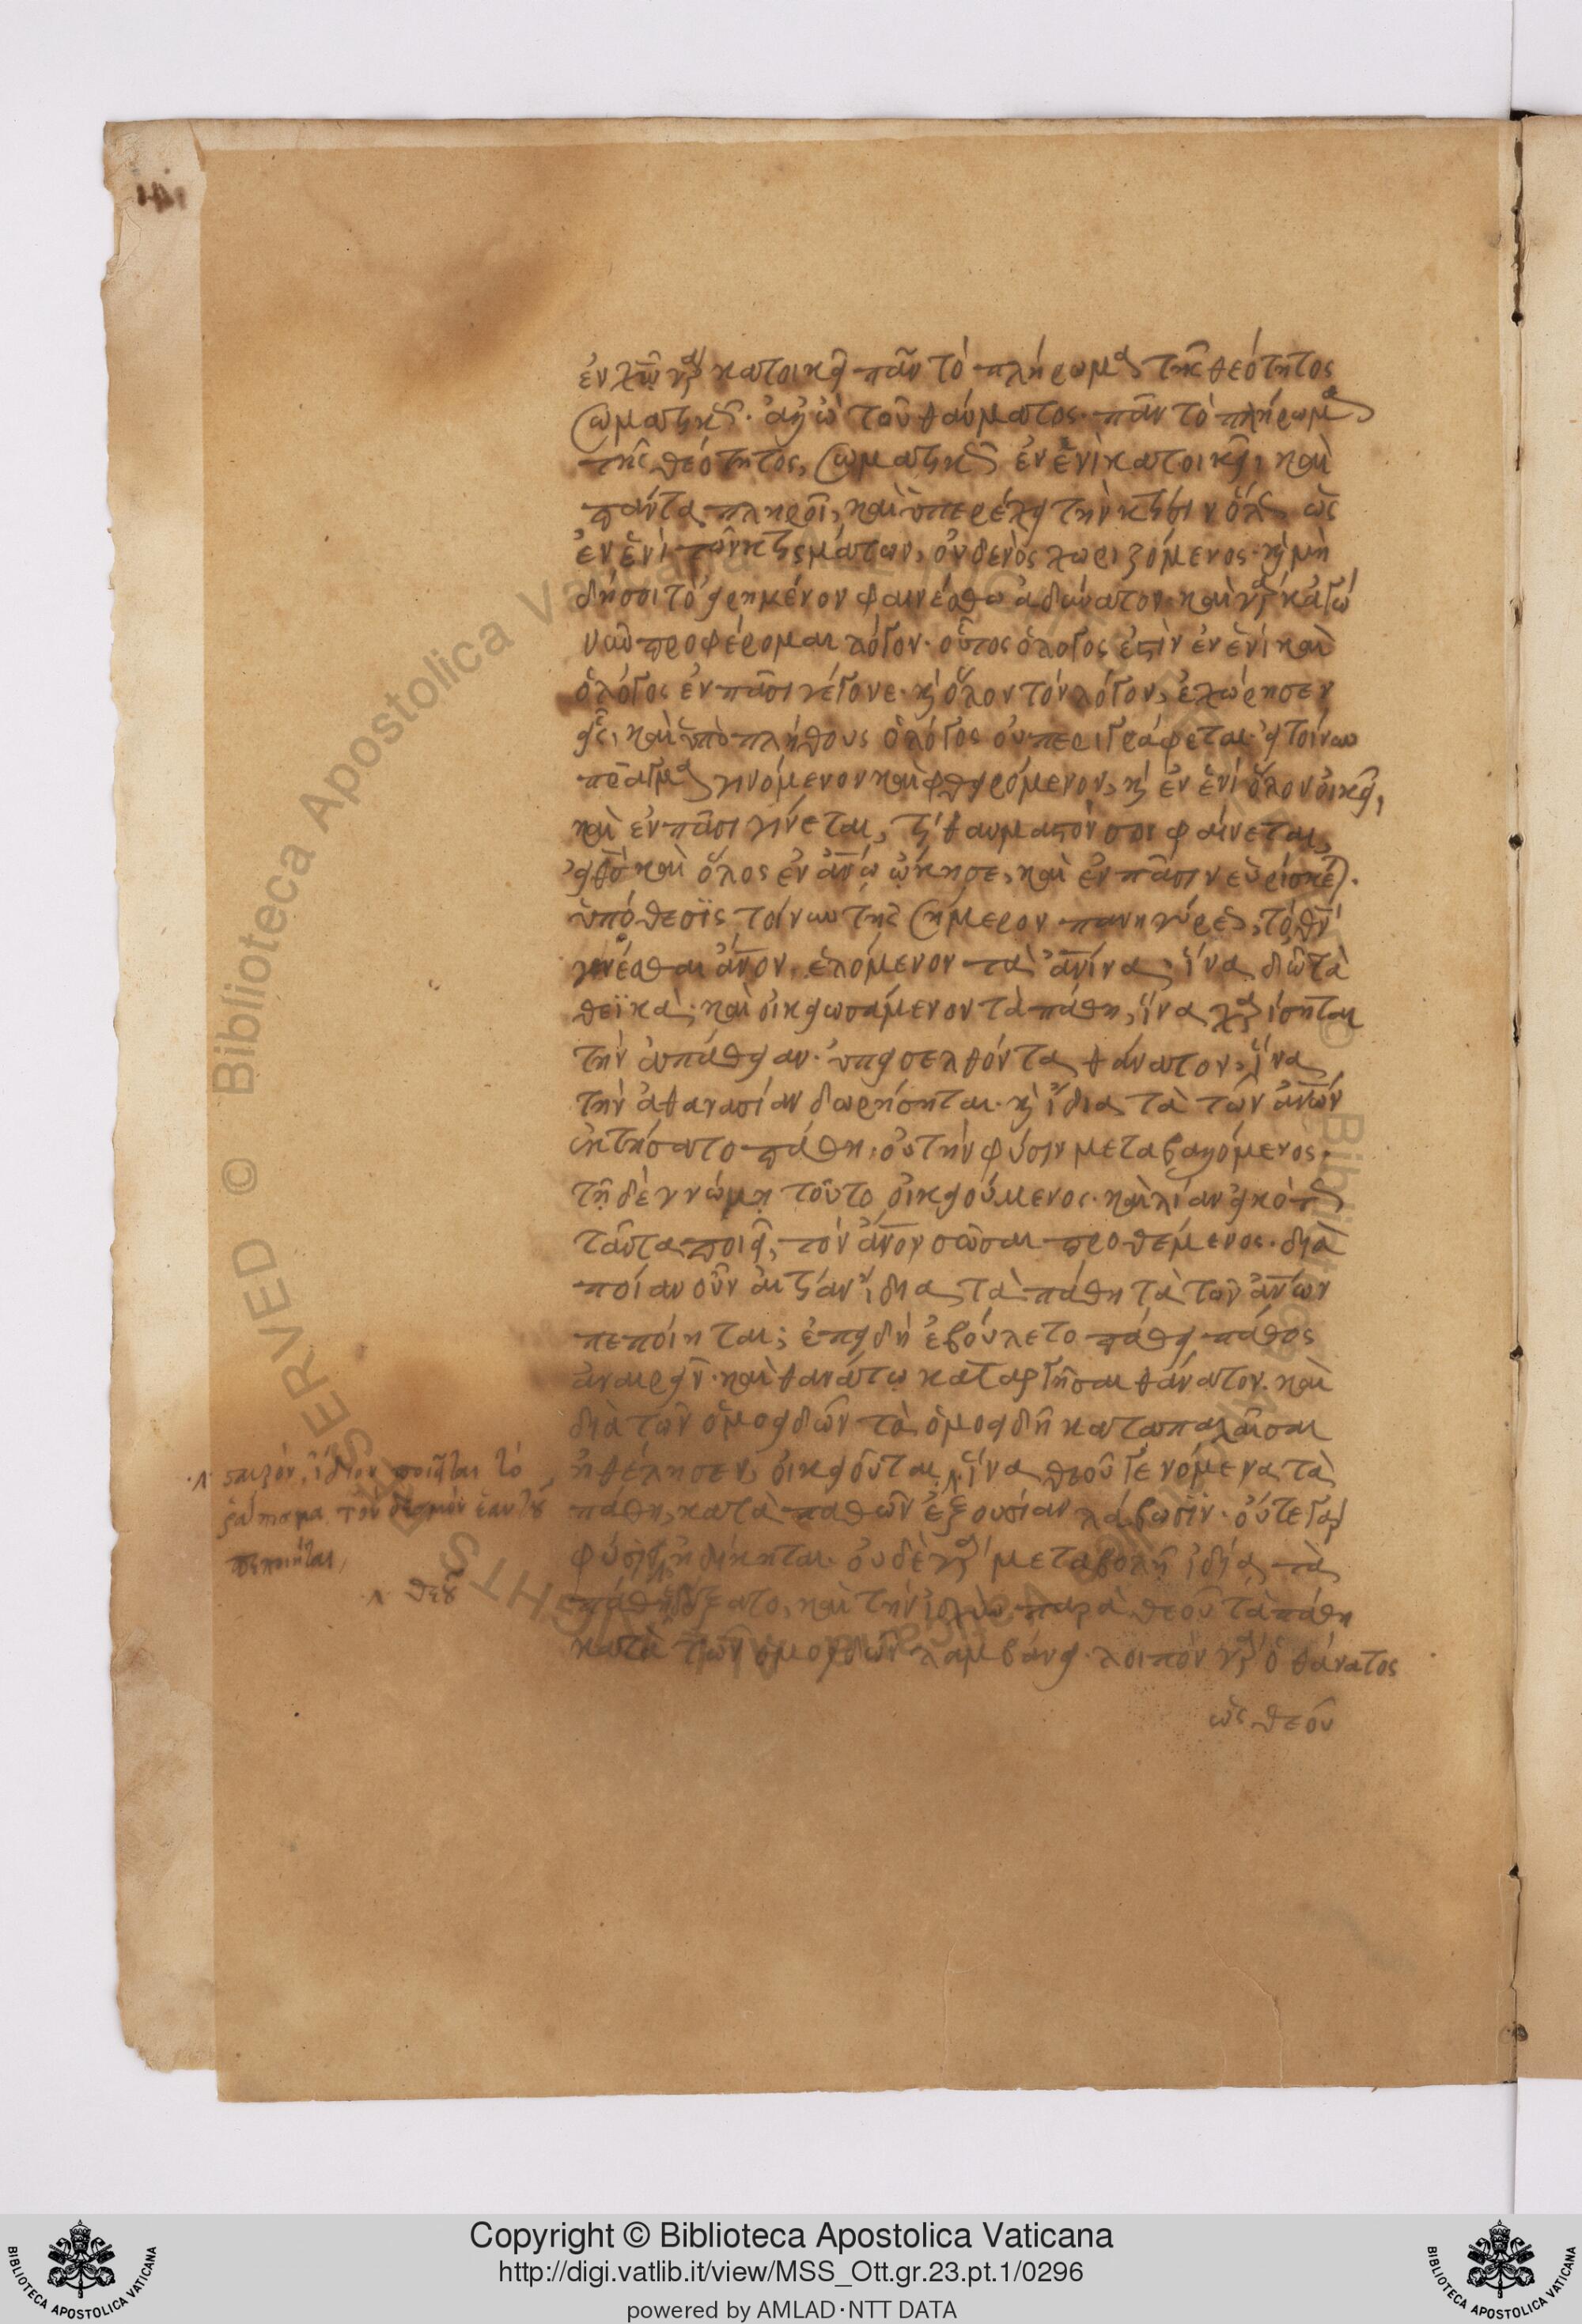 ἐν χ͞ω γὰρ κατοικεῖ πᾶν τὸ πλήρωμα τῆς θεότητος
σωματικῶς. ἀλλ' ὢ τοῦ θαύματος. πᾶν τὸ πλήρωμα
τῆς θεότητος, σωματικῶς ἐν ἑνὶ κατοικεῖ, καὶ
πάντα πληροῖ, καὶ ὑπερέχει τὴν κτίσιν ὅλως ὡς
ἐν ἑνὶ τῶν κτισμάτων, οὐδενὸς χωριζόμενος. καὶ μὴ
δή σοι τὸ εἰρημένον φαινέσθω ἀδύνατον. καὶ γὰρ κἀγὼ
νῦν προφέρομαι λόγον. οὗτος ὁ λόγος ἐστὶν ἐν ἑνὶ καὶ
ὁ λόγος ἐν πᾶσι γέγονε. καὶ ὅλον τὸν λόγον, ἐχώρησεν
εἷς, καὶ ὑπὸ πλήθους ὁ λόγος οὐ περιγράφεται. εἰ τοίνυν
πρᾶγμα γινόμενον καὶ φθειρόμενον, καὶ ἐν ἑνὶ ὅλον οἰκεῖ,
καὶ ἐν πᾶσι γίνεται, τί θαυμαστόν σοι φαίνεται,
εἰ θ͞ς καὶ ὅλος ἐν ἀν͞ω ᾤκησε, καὶ ἐν πᾶσιν εὑρίσκεται.
ὑπόθεσϊς τοίνυν τῆς σήμερον πανηγύρεως, τὸ θ͞ν
γενέσθαι ἄν͞ον, ἑλόμενον τὰ ἀν͞ινα, ἵνα δῶ τὰ
θεϊκὰ, καὶ οἰκειωσάμενον τὰ πάθη, ἵνα χαρίσηται
τὴν ἀπάθειαν. ὑπεισελθόντα θάνατον, ἵνα
τὴν ἀθανασίαν δωρήσηται. καὶ ἴδια τὰ τῶν ἀν͞ων
ἐκτήσατο πάθη, οὐ τὴν φύσιν μεταβαλόμενος,
τῇ δὲ γνώμῃ τοῦτο οἰκειούμενος. καὶ λίαν εἰκότως
ταῦτα ποιεῖ, τὸν ἄν͞ον σῶσαι προθέμενος. διὰ
ποίαν οὖν αἰτίαν ἴδια τὰ πάθη τὰ τῶν ἀν͞ων
πεποίηται; ἐπειδὴ ἐβούλετο πάθει πάθος
ἀναιρεῖν. καὶ θανάτω καταργῆσαι θάνατον. καὶ
διὰ τῶν ὁμοειδῶν τὰ ὁμοειδῆ καταπαλαῖσαι
ἠθέλησεν, οἰκειοῦται, ἵνα θεοῦ γενόμενα τὰ
πάθη, κατὰ παθῶν ἐξουσίαν λάβωσϊν. οὔτε γὰρ
φύσει ἠδίκηται. οὐδὲ γὰρ μεταβολῇ ἰδία τὰ
πάθη ἐδέξατο, καὶ τὴν ἰσχὺν παρὰ θεοῦ τὰ πάθη
κατὰ τῶν ὁμοειδῶν λαμβάνει. λοιπὸν γὰρ ὁ θάνατος
ὡς θεοῦ
ἴδιον ποιεῖται τὸ
τὸν δεσμὸν ἑαυτοῦ
πεποιῆται,
θεοῦ